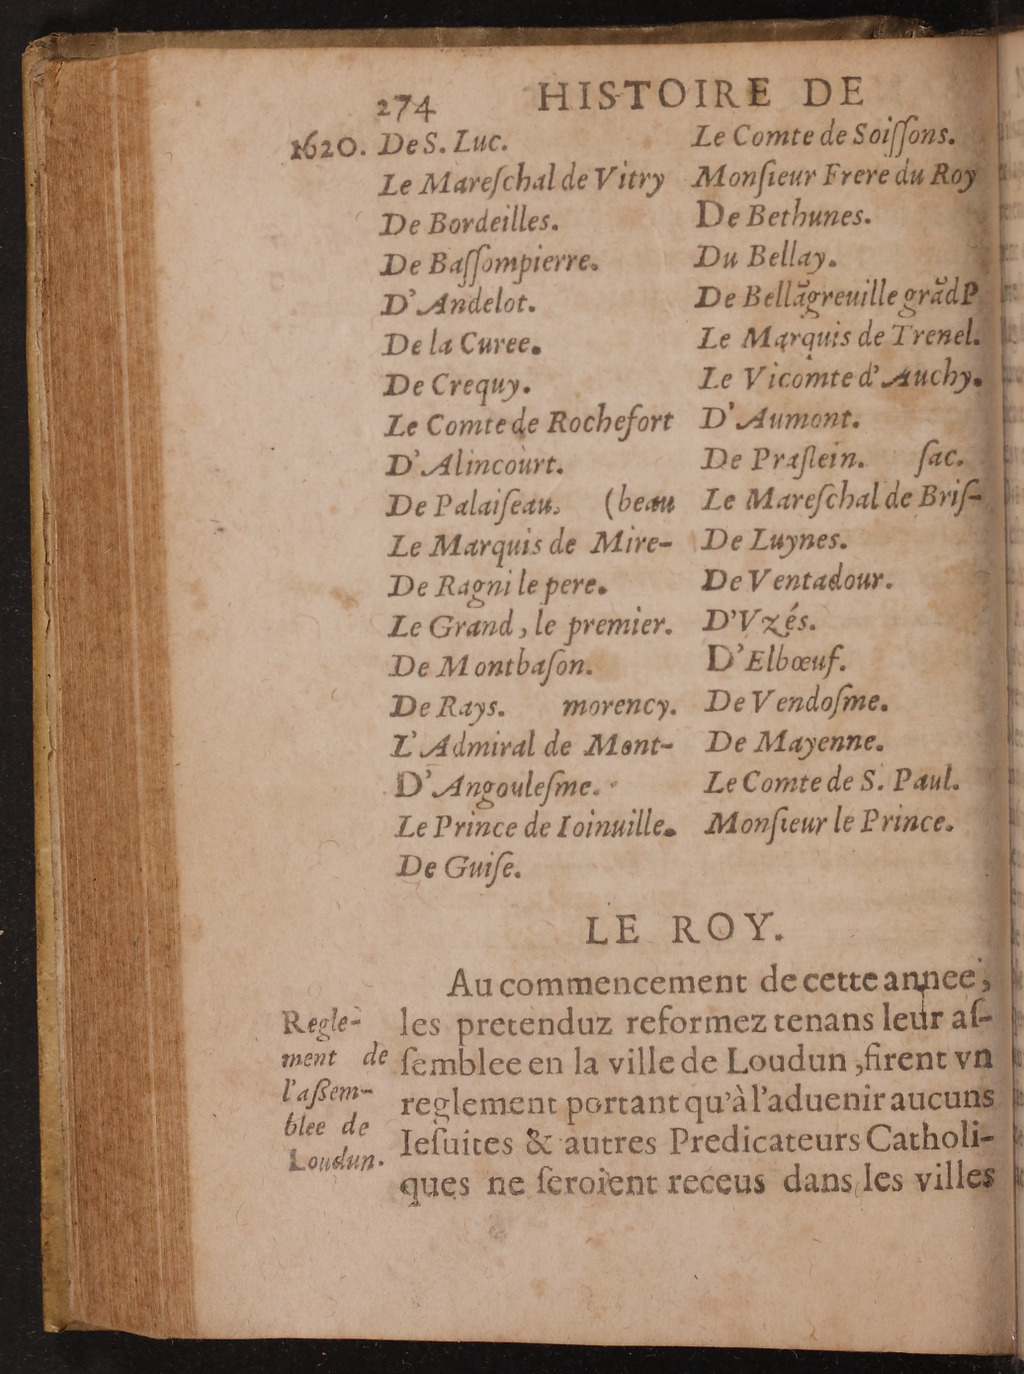 274 HISTOIRE DE
1620. De S. Luc.
Le Mareſchal de Vitry
De Bordeilles.
De Baſſompierre.
D'Andelot.
De la Curee.
De Crequy.
Le Comte de Rochefort
D'Alincourt.
De Palaiſeau. (beau
Le Marquis de Mire-
De Ragni le pere.
Le Grand, le premier.
De Montbaſon.
De Rays. morency.
L'Admiral de Mont-
D'Angouleſme.
Le Prince de Ioinuille.
De Guiſe.
Le Comte de Soiſſons.
Monſieur Frere du Roy
De Bethunes.
Du Bellay.
De Bellãgreuille grãd P
Le Marquis de Trenel.
Le Vicomte d'Auchy.
D'Aumont.
De Praſlein. ſac.
Le Mareſchal de Briſ-
De Luynes.
De Ventadour.
D'Vzés.
D'Elbœuf.
De Vendoſme.
De Mayenne.
Le Comte de S. Paul.
Monſieur le Prince.
LE ROY.
Au commencement de cette annee,
les pretenduz reformez tenans leur aſ-
ſemblee en la ville de Loudun, firent vn
reglement portant qu'à l'aduenir aucuns
Ieſuites & autres Predicateurs Catholi-
ques ne ſeroient receus dans les villes
Regle-
ment de
l'aſſem-
blee de
Loudun.